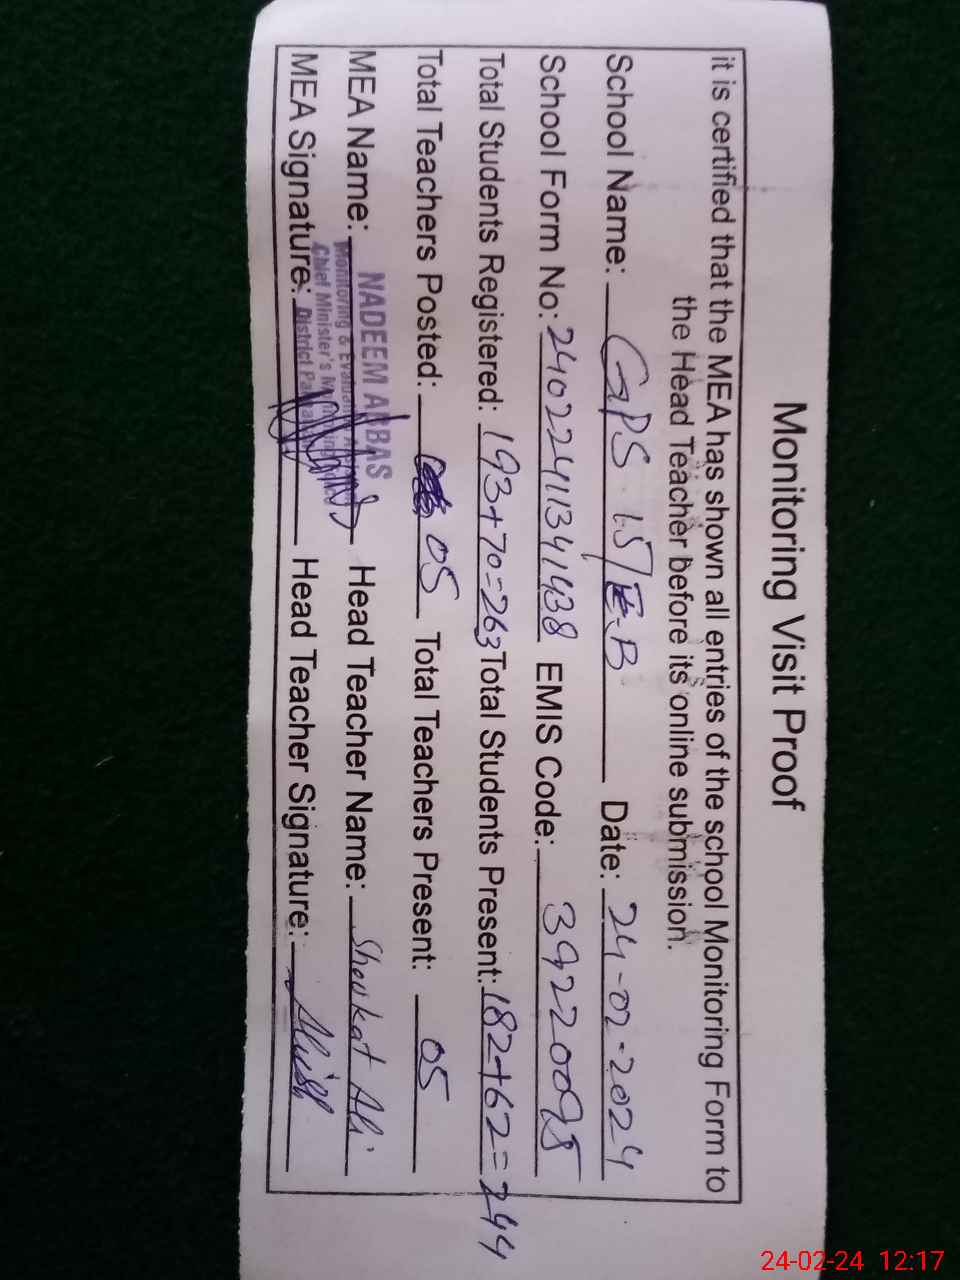 Monitoring Visit Proof
it is certified that the MEA has shown all entries of the school Monitoring Form to
the Head Teacher before its online submission.
School Name: GPS 15/E.B Date: 24-02-2024
School Form No: 24022411341438 EMIS Code: 39220098
Total Students Registered: 193+70=263 Total Students Present: 182+62=244
Total Teachers Posted: 05 Total Teachers Present: 05
MEA Name: NADEEM ABBAS Head Teacher Name: Shoukat Ali
Monitoring & Evaluation
Chief Minister's
District
MEA Signature: Head Teacher Signature:
24-02-24 12:17